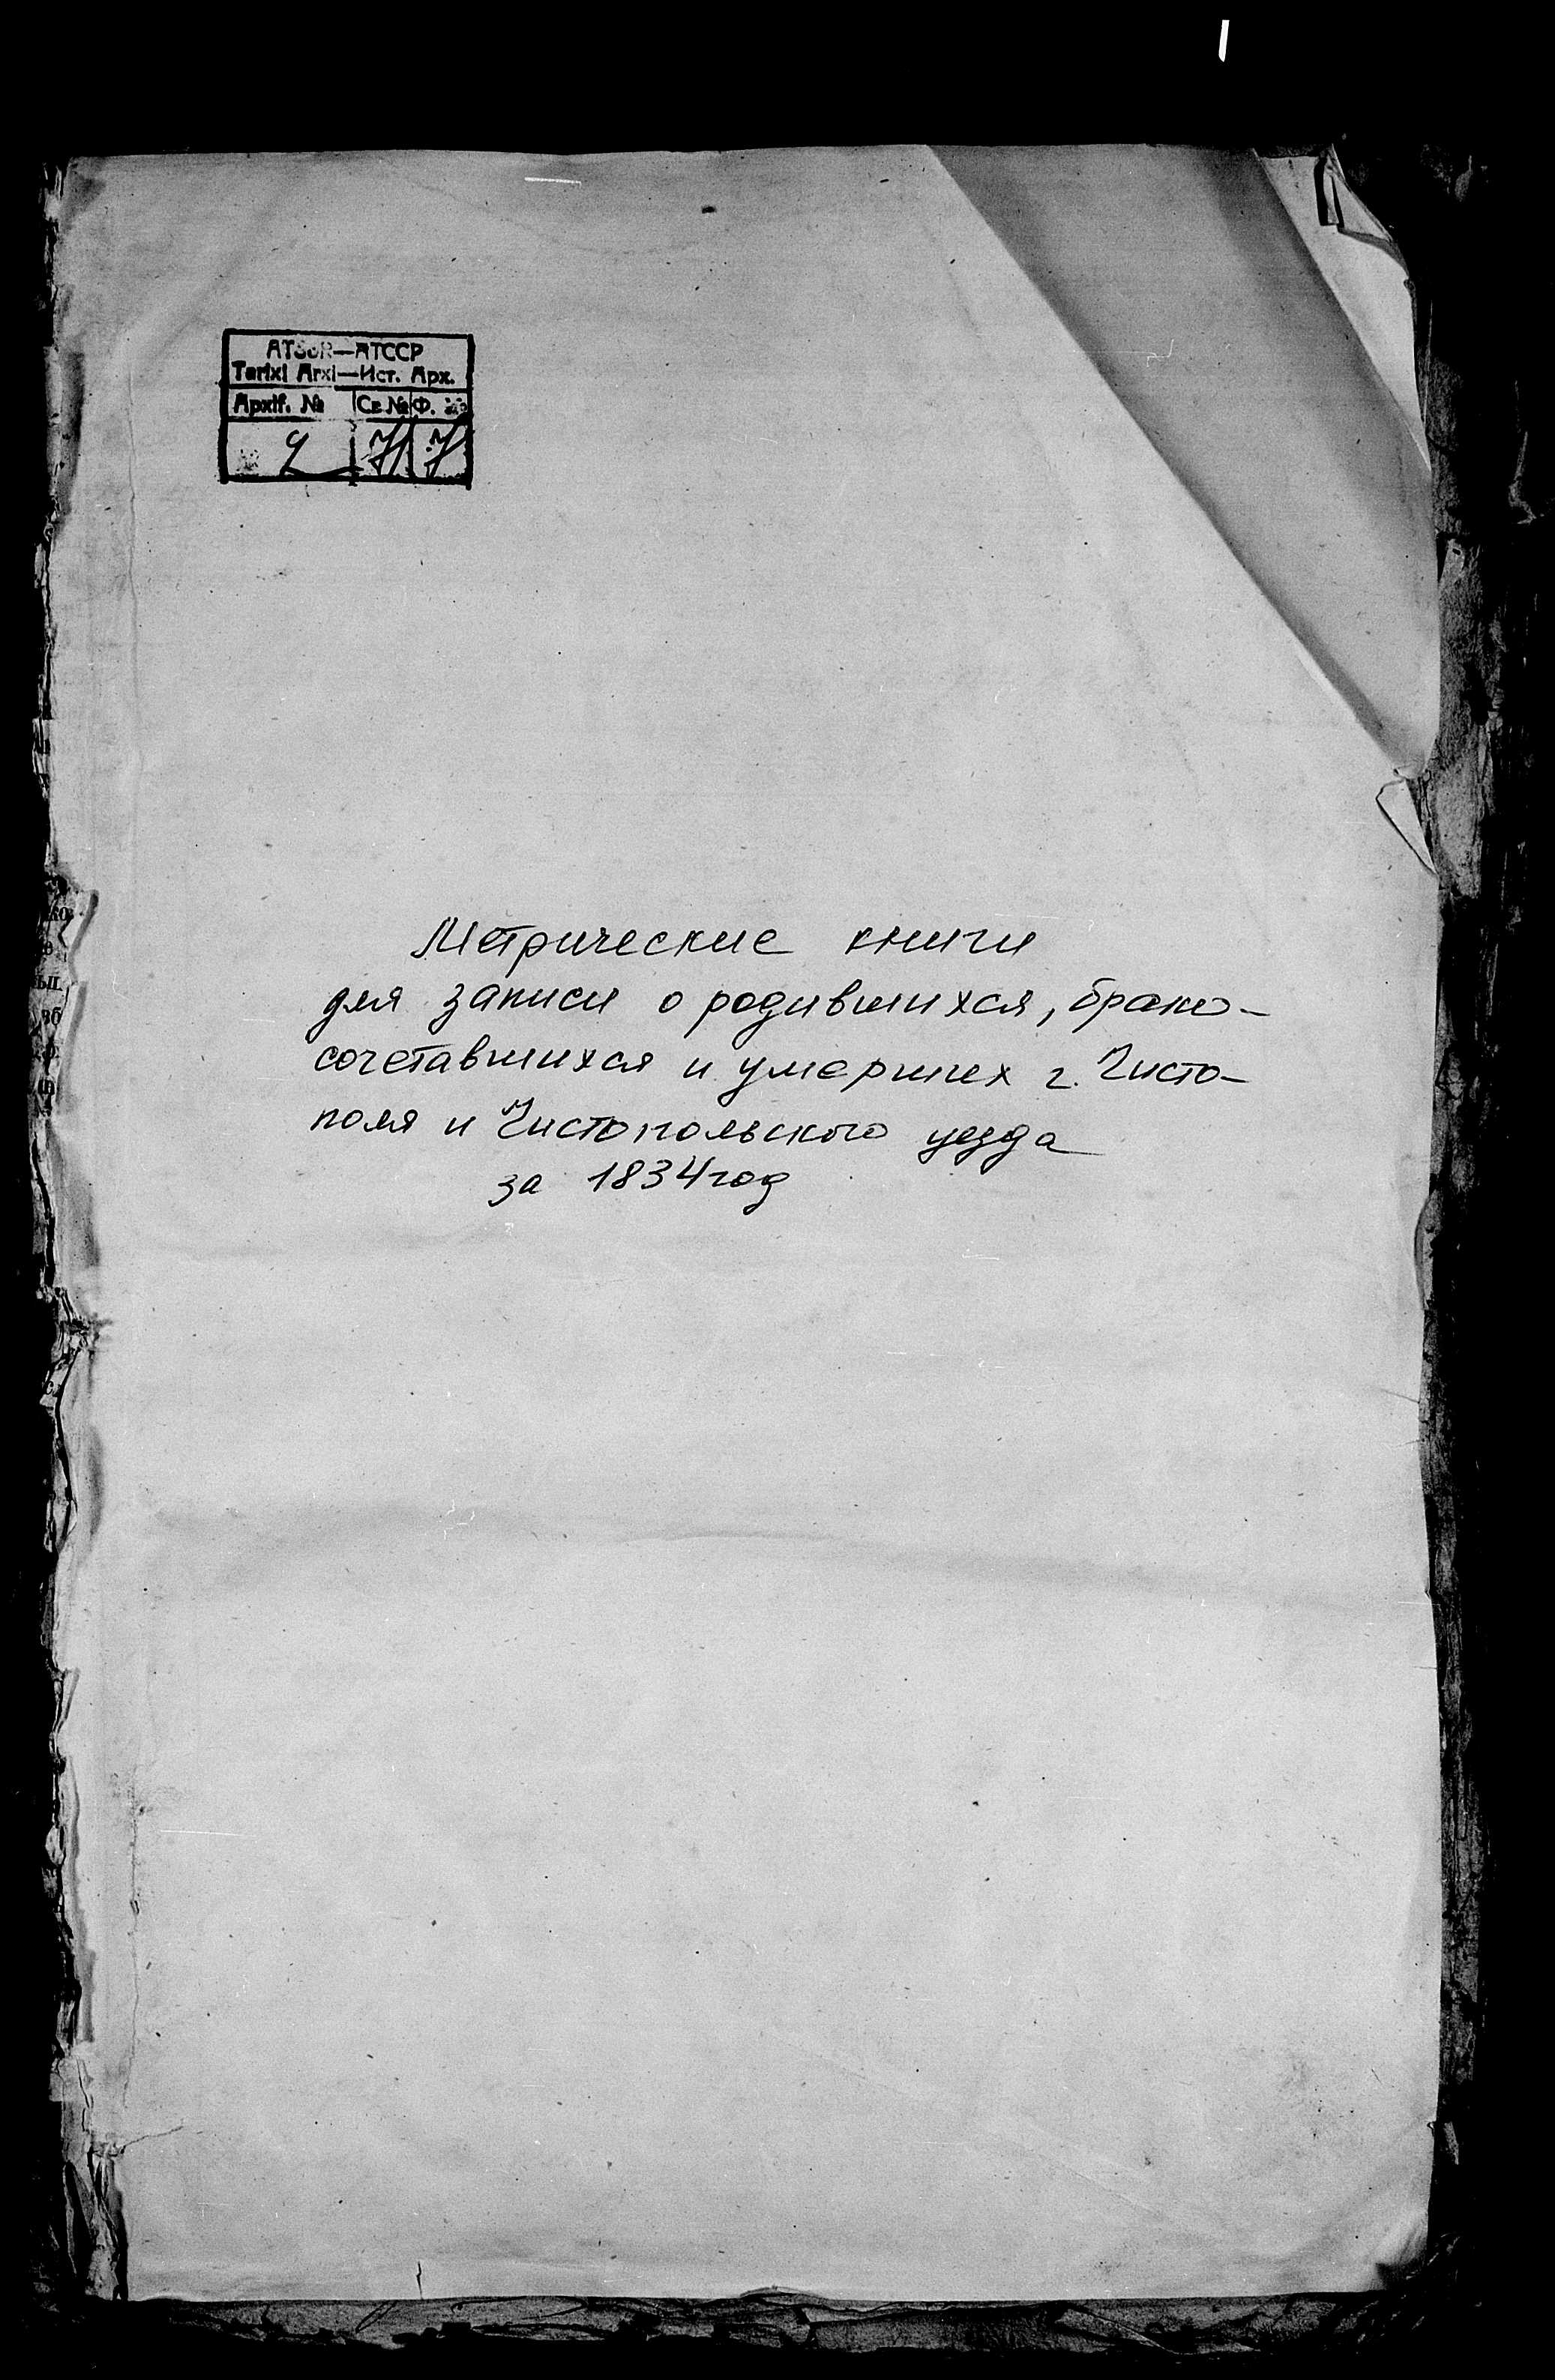 ATSSR—АТССР
Tarixi Arxi—Ист. Арх.
Арxif. № Св.№ Ф. №
Метрические книги
для записи о родившихся, брако-
сочетавшихся и умерших г. Чисто-
поля и Чистопольского уезда
за 1834 год